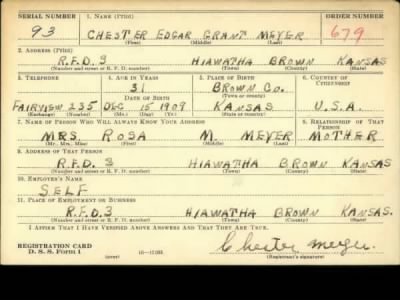 SERIAL NUMBER 1. NAME (Print) ORDER NUMBER
93 CHESTER EDGAR GRANT MEYER 679
(First) (Middle) (Last)
2. ADDRESS (Print)
R.F.D. 3 HIAWATHA BROWN KANSAS
(Number and street or R. F. D. number) (Town) (County) (State)
3. TELEPHONE 4. AGE IN YEARS 5. PLACE OF BIRTH 6. COUNTRY OF CITIZENSHIP
31 BROWN CO.
DATE OF BIRTH (Town or county)
FAIRVIEW 235 DEC 15 1909 KANSAS U.S.A.
(Exchange) (Number) (Mo.) (Day) (Yr.) (State or country)
7. NAME OF PERSON WHO WILL ALWAYS KNOW YOUR ADDRESS 8. RELATIONSHIP OF THAT PERSON
MRS. ROSA M. MEYER MOTHER
(Mr., Mrs., Miss) (First) (Middle) (Last)
9. ADDRESS OF THAT PERSON
R.F.D. 3 HIAWATHA BROWN KANSAS
(Number and street or R. F. D. number) (Town) (County) (State)
10. EMPLOYER'S NAME
SELF
11. PLACE OF EMPLOYMENT OR BUSINESS
R.F.D. 3 HIAWATHA BROWN KANSAS.
(Number and street or R. F. D. number) (Town) (County) (State)
I AFFIRM THAT I HAVE VERIFIED ABOVE ANSWERS AND THAT THEY ARE TRUE.
REGISTRATION CARD
D. S. S. Form 1 (over) Chester Meyer.
(Registrant's signature)